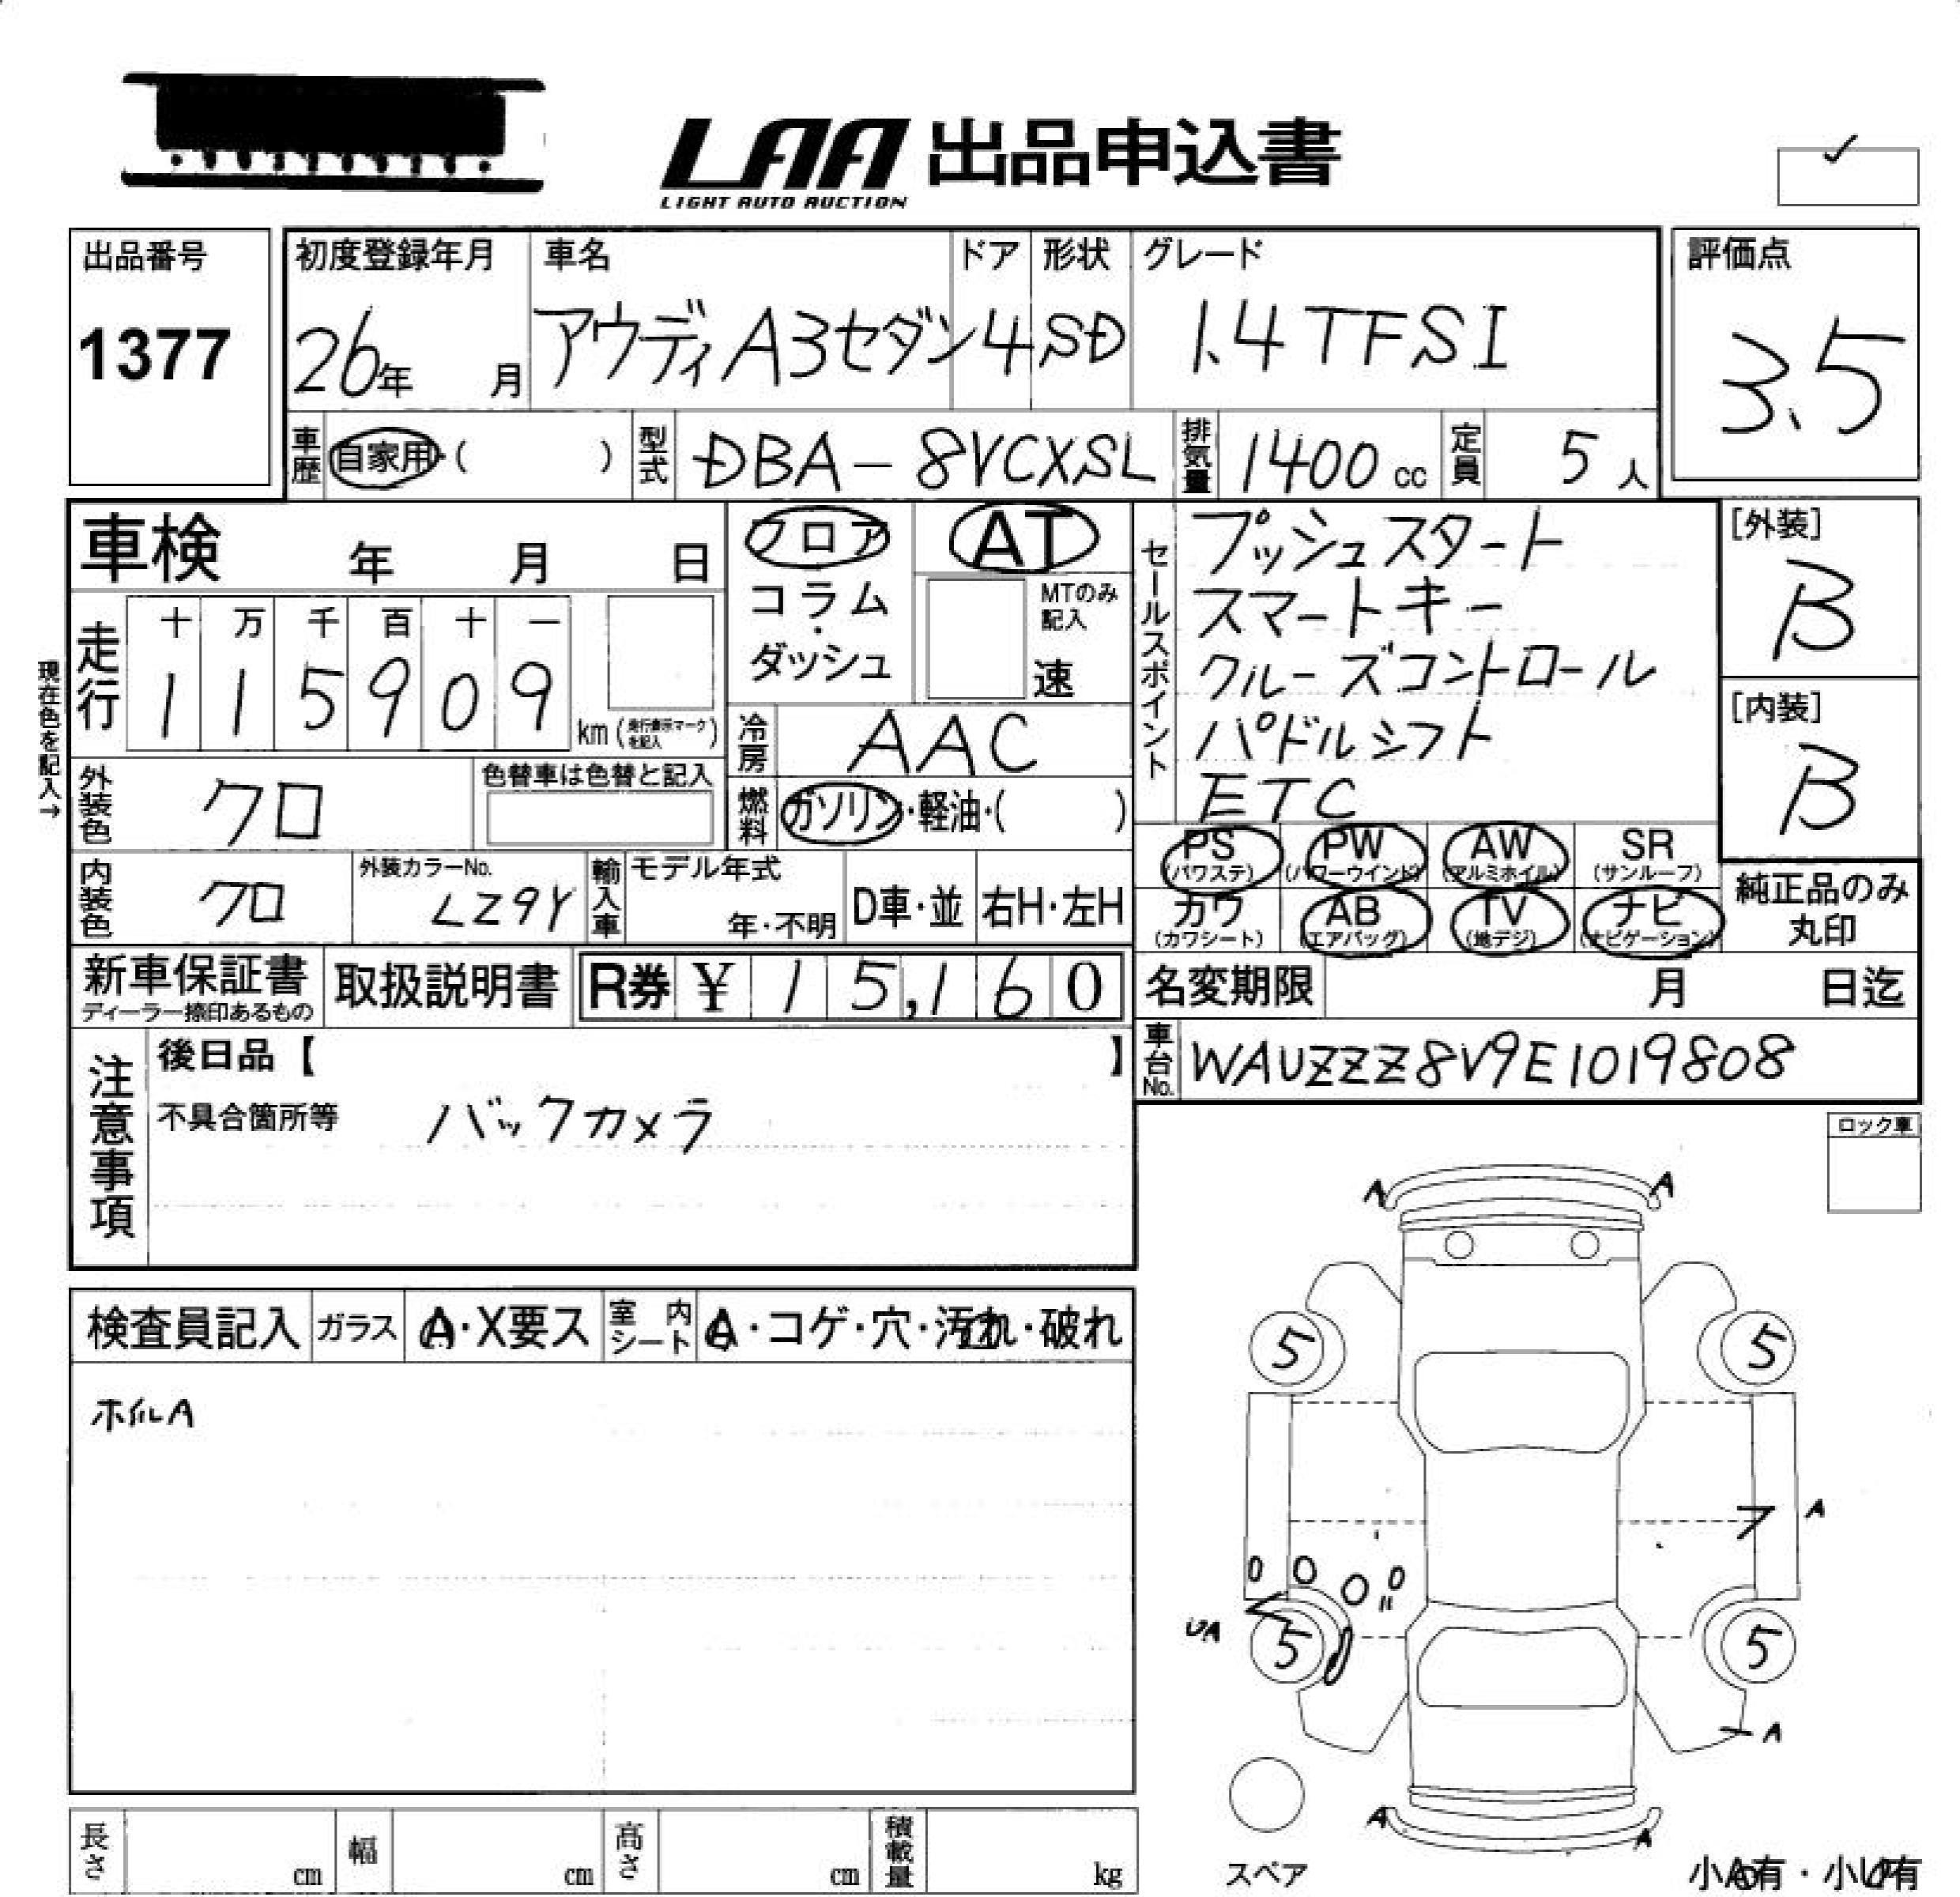 LAA 出品申込書
LIGHT AUTO AUCTION
出品番号
1377
初度登録年月
26年 月
車名
アウディA3セダン
ドア
4
形状
SD
グレード
1.4TFSI
評価点
3.5
車歴 自家用・( )
型式 DBA-8VCXSL
排気量 1400cc
定員 5人
車検 年 月 日
現在色を記入→
走行
十 万 千 百 十 一
1 1 5 9 0 9
km(走行表示マークを記入)
フロア・コラム・ダッシュ
AT
MTのみ記入
速
冷房 AAC
燃料 ガソリン・軽油・( )
外装色 クロ
色替車は色替と記入
内装色 クロ
外装カラーNo.
LZ9Y
輸入車
モデル年式
年・不明
D車・並
右H・左H
セールスポイント
プッシュスタート
スマートキー
クルーズコントロール
パドルシフト
ETC
[外装]
B
[内装]
B
PS (パワステ) PW (パワーウインド) AW (アルミホイル) SR (サンルーフ)
カワ (カワシート) AB (エアバッグ) TV (地デジ) ナビ (ナビゲーション)
純正品のみ
丸印
新車保証書
ディーラー捺印あるもの
取扱説明書
R券 ¥ 15,160
名変期限 月 日迄
車台No. WAUZZZ8V9E1019808
注意事項
後日品【 】
不具合箇所等 バックカメラ
ロック車
検査員記入 ガラス A・X要ス 室内シート A・コゲ・穴・汚れ・破れ
ホイルA
A A
5 5
A
UA
5 5
A
A A
スペア
小A有・小U有
長さ cm 幅 cm 高さ cm 積載量 kg